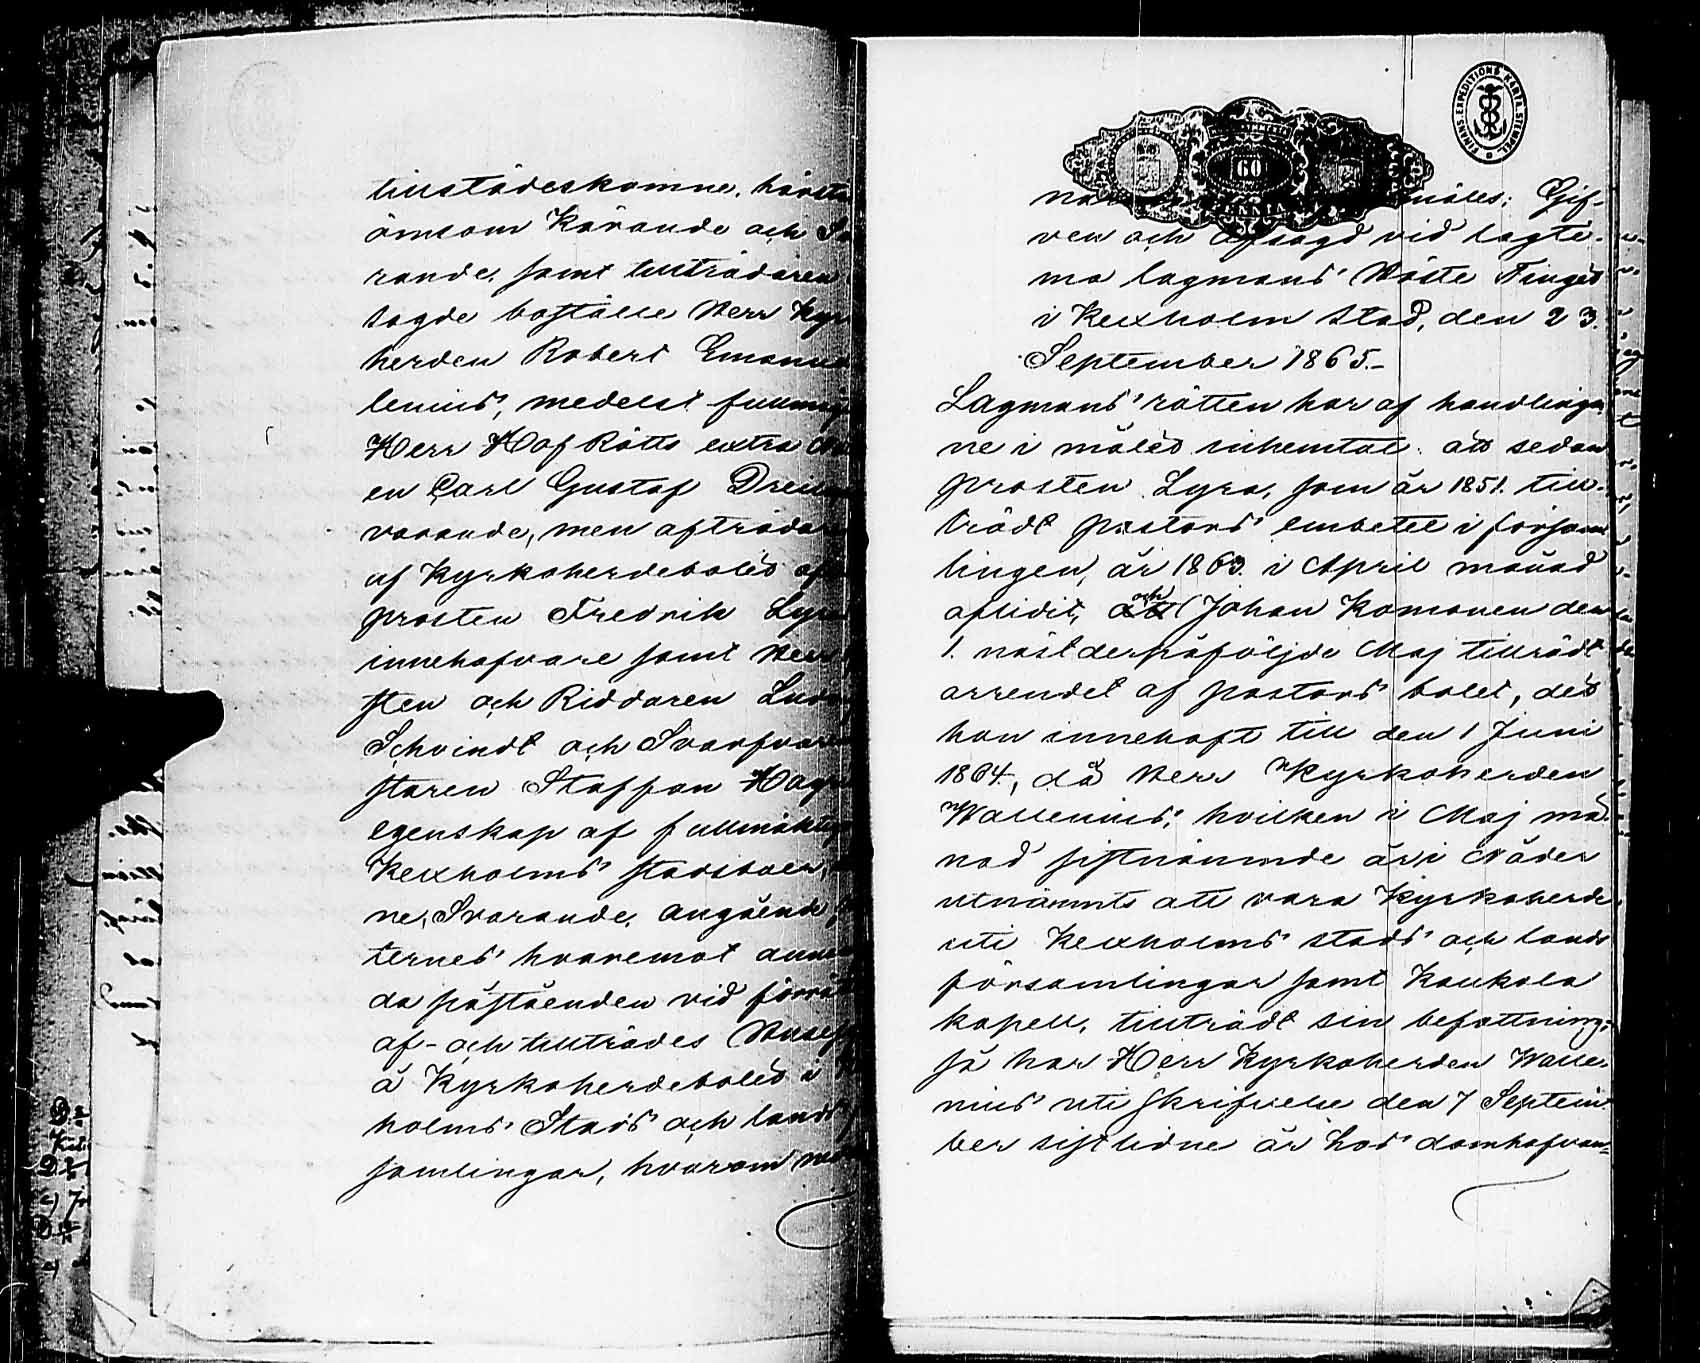 tillstädeskomne,
ömsom Kärande och
rande, samt tillträdaren
sagde boställe Herr
herden Robert
lenius, medelst
Herr Hof Rätts extra
en Carl Gustaf
varande, men
af Kyrkoherdebolet
prosten Fredrik
innehafvare samt
sten och Riddaren
Schvindt och
staren Staffan
egenskap af
Kexholms stadsboer,
ne, Svarande, angående
ternes hvaremot
da påståenden vid
af- och tillträdes
å Kyrkoherdebolet i
holms Stads och lands
samlingar, hvarom
FINANS. EXPEDITIONS KARTE. STEMPEL
60
PENNIÄ
mäles; Gif-
ven och afsagd vid lagti-
ma lagmans Höste Tinget
i Kexholm stad, den 23.
September 1865.-
Lagmans rätten har af handlingar
ne i målet inhemtat: att sedan
prosten Lyra, som år 1851. till-
trädt pastors embetet i försam
lingen, år 1863. i April månad
aflidit, och Johan Komonen den
1. näst derpåföljde Maj tillrädt
arrendet af pastors bolet, det
han innehaft till den 1 Juni
1864, då Herr Kyrkoherden
Wallenius, hvilken i Maj må-
nad sistnämnde år i Nåder
utnämnts att vara Kyrkoherde
uti Kexholms stads och lands
församlingar samt Kaukola
kapell, tillträdt sin befattning;
så har Herr Kyrkoherden Walle-
nius uti skrifvelse den 7 Septem-
ber sistlidne år hos domhafvan-